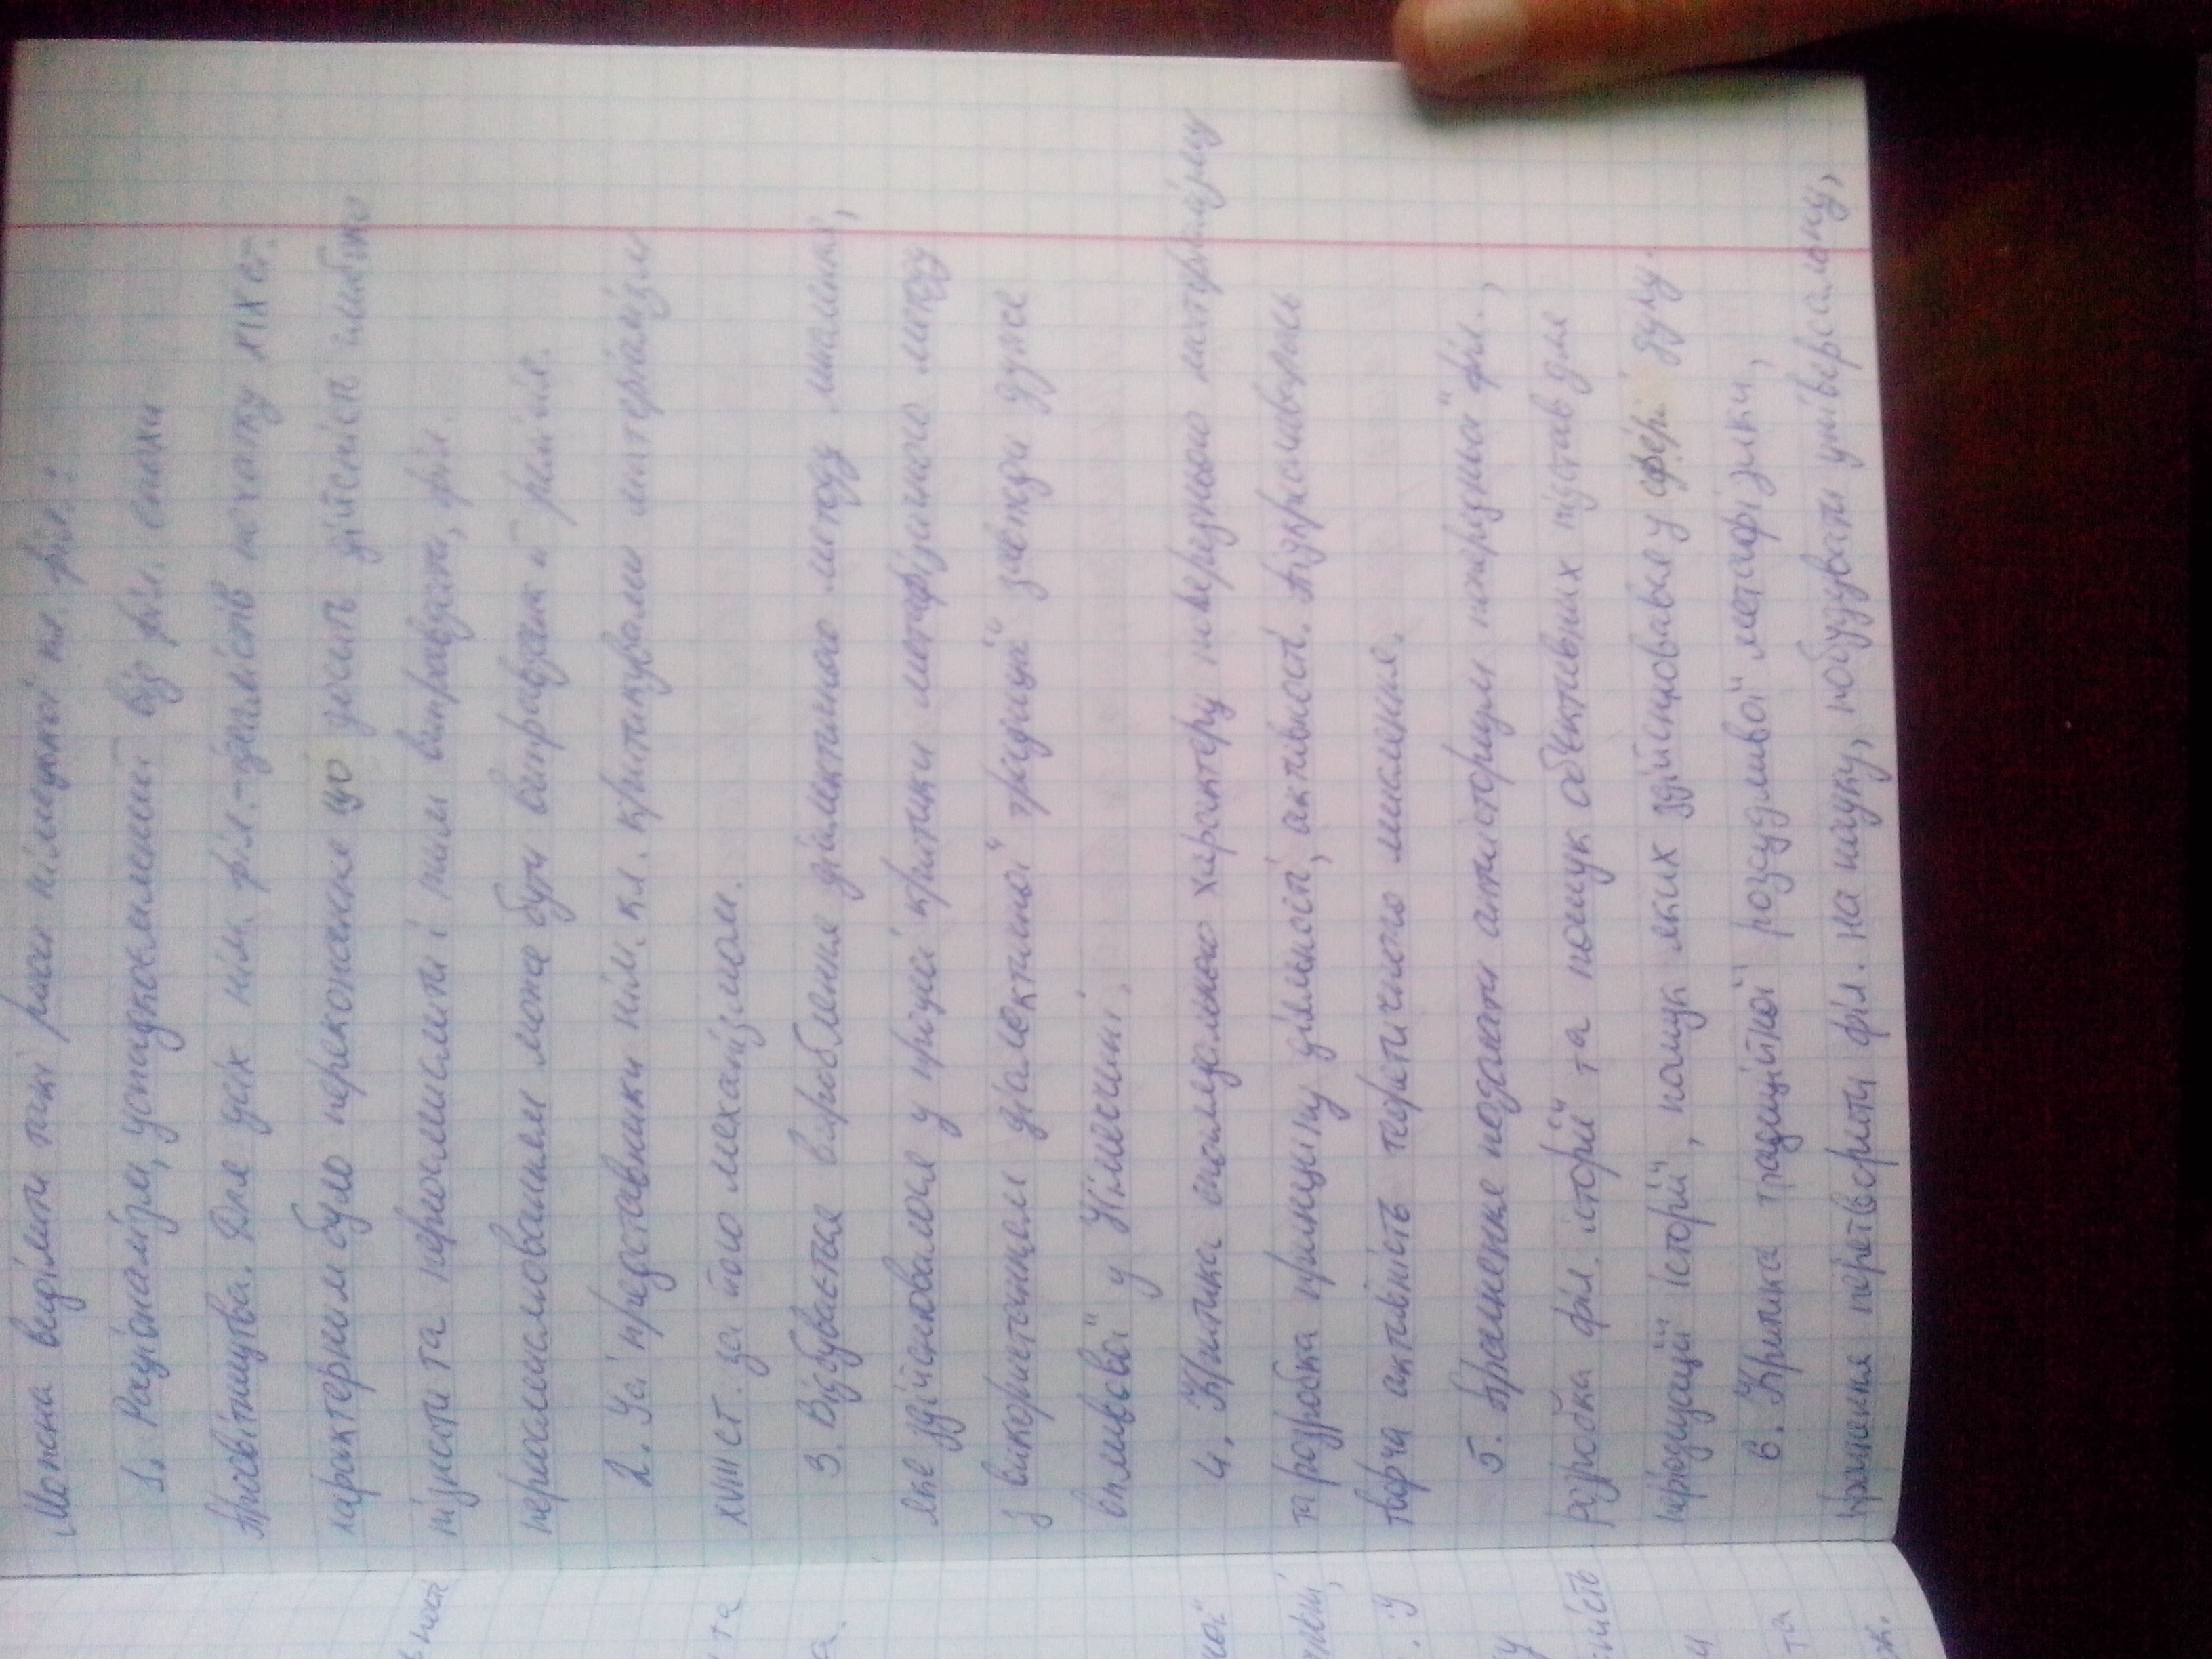 Можна виділити такі риси німецької кл. філ.:
1. Раціоналізм, успадкоємлений від філ. епохи
Просвітництва. Для усіх нім. філ.-ідеалістів початку XIX ст.
характерним було переконання що досить дійсність глибоко
пізнати та переосмислити і тим виправдати, філ.
переосмислюванням може бути виправдана й релігія.
2. Усі представники нім. кл. критикували матеріалізм
XVIII ст. за його механізмом.
3. Відбувається вироблення діалектичного методу мислення,
яке здійснювалося у процесі критики метафізичного методу
з використанням діалектичної традиції завжди дуже
впливової у Німеччині.
4. Критика споглядального характеру попереднього матеріалізму
та розробка принципу діяльності, активності. Підкреслювалась
творча активність теоретичного мислення.
5. Прагнення подолати антиісторизм попередньої філ.,
розробка філ. історії та пошук об'єктивних підстав для
періодизації історії, пошук яких здійснювався у сфері духу.
6. Критика традиційної розсудливої метафізики,
прагнення перетворити філ. на науку, побудувати універсальну,